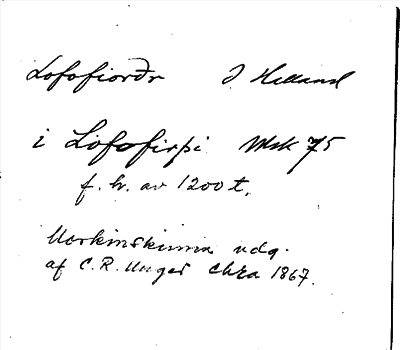 Lofofiorðr J Helland
i Lofofirþi Msk 75
f. h. av 1200 t.
Morkinskinna udg.
af C. R. Unger Chra 1867.